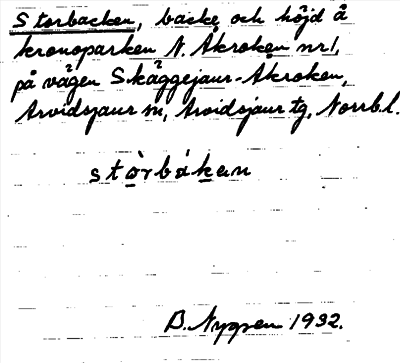 Storbacken, backe och höjd å
kronoparken N. Åkroken nr 1,
på vägen Skäggejaur-Åkroken,
Arvidsjaur sn, Arvidsjaur tg, Norrb.l.
stòrbákan
B. Nygren 1932.